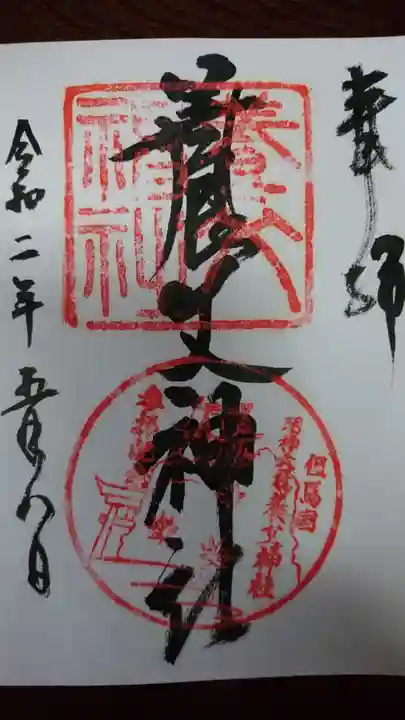 奉拝
養父神社
養父神社
但馬國
名神大社養父神社
令和二年五月八日